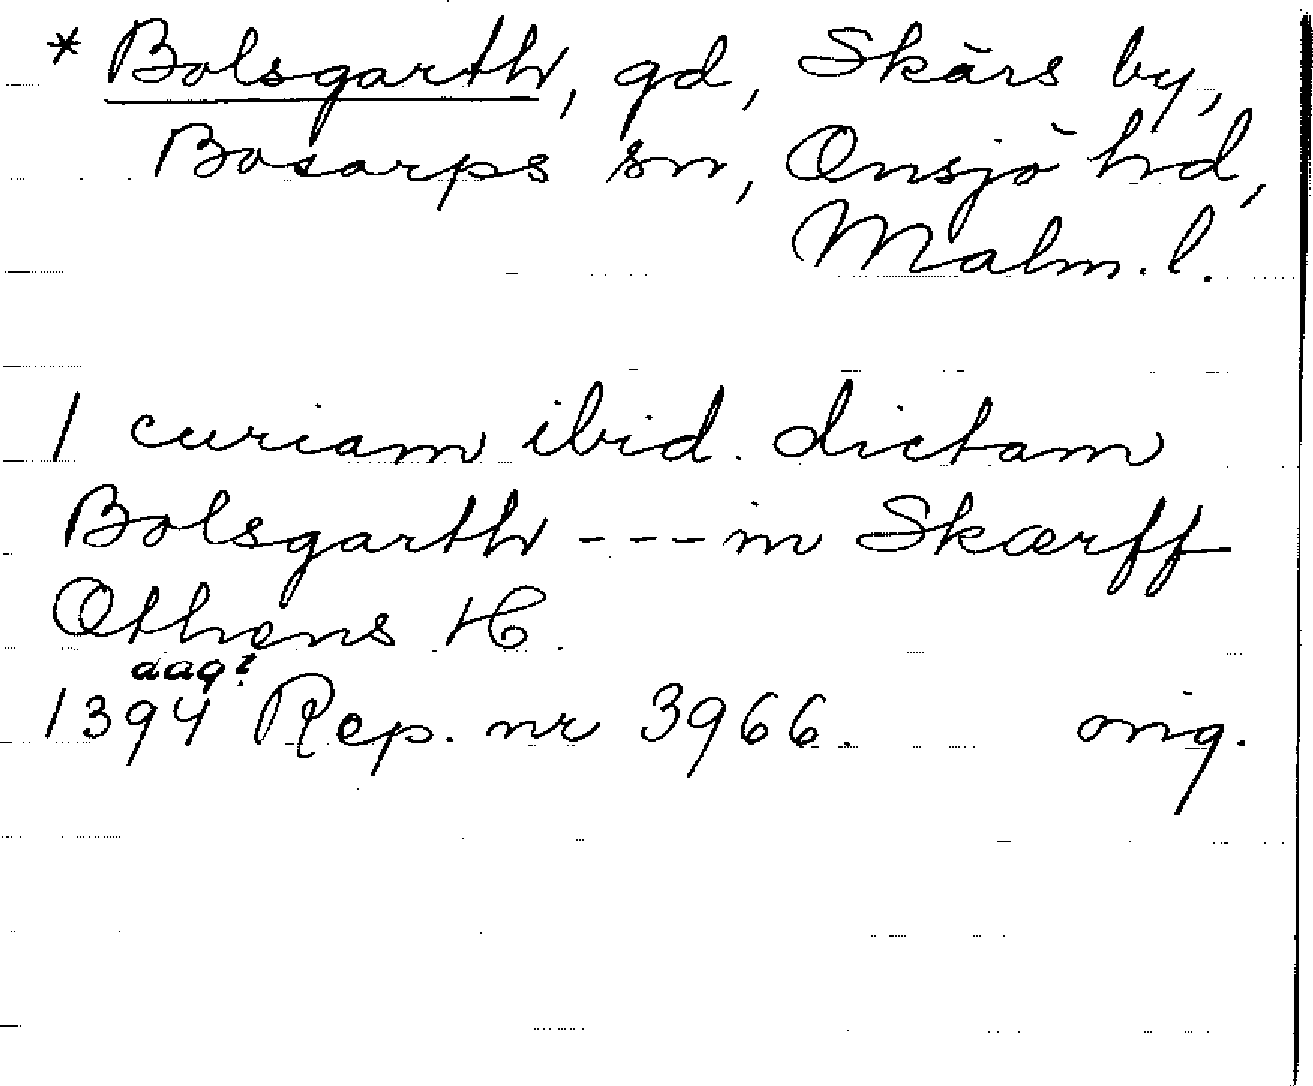 * Bolsgarth, gd, Skärs by,
Bosarps sn, Onsjö hd,
Malm. l.
1 curiam ibid. dictam
Bolsgarth --- in Skærff
Othens H.
aag?
1394 Rep. nr 3966. orig.